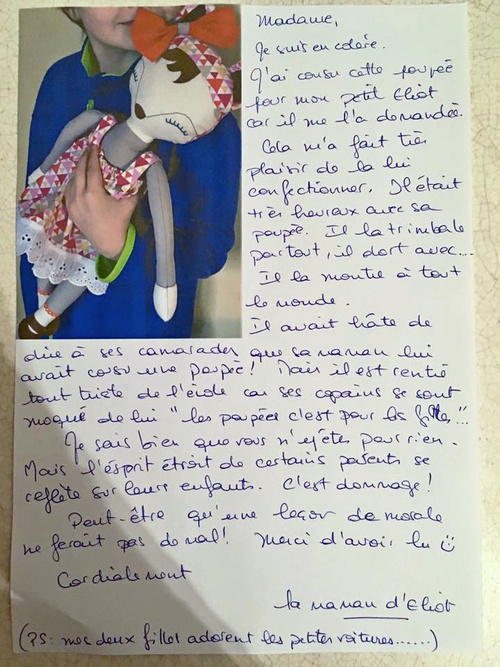 Madame,
Je suis en colère.
J'ai cousu cette poupée
pour mon petit Eliot
car il me l'a demandée.
Cela m'a fait très
plaisir de la lui
confectionner. Il était
très heureux avec sa
poupée. Il la trimbale
partout, il dort avec...
Il la montre à tout
le monde.
Il avait hâte de
dire à ses camarades que sa maman lui
avait cousu une poupée! Mais il est rentré
tout triste de l'école car ses copains se sont
moqué de lui "les poupées c'est pour les filles"...
Je sais bien que vous n'y êtes pour rien.
Mais l'esprit étroit de certains parents se
reflète sur leurs enfants. C'est dommage!
Peut-être qu'une leçon de morale
ne ferait pas de mal! Merci d'avoir lu ☺
Cordialement
la maman d'Eliot
(PS: mes deux filles adorent les petites voitures......)